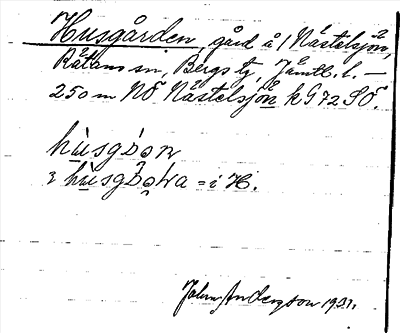 Husgården, gård å 1 Nästelsjön,
Rätans sn, Bergs tg, Jämtl. l. —
250 m NÖ Nästelsjön k G72 SÖ.
hùsgɔ̀ɔn
ɜ hùsgɔ̀ɔ̣ꞎa = i H.
John Andersson 1931.